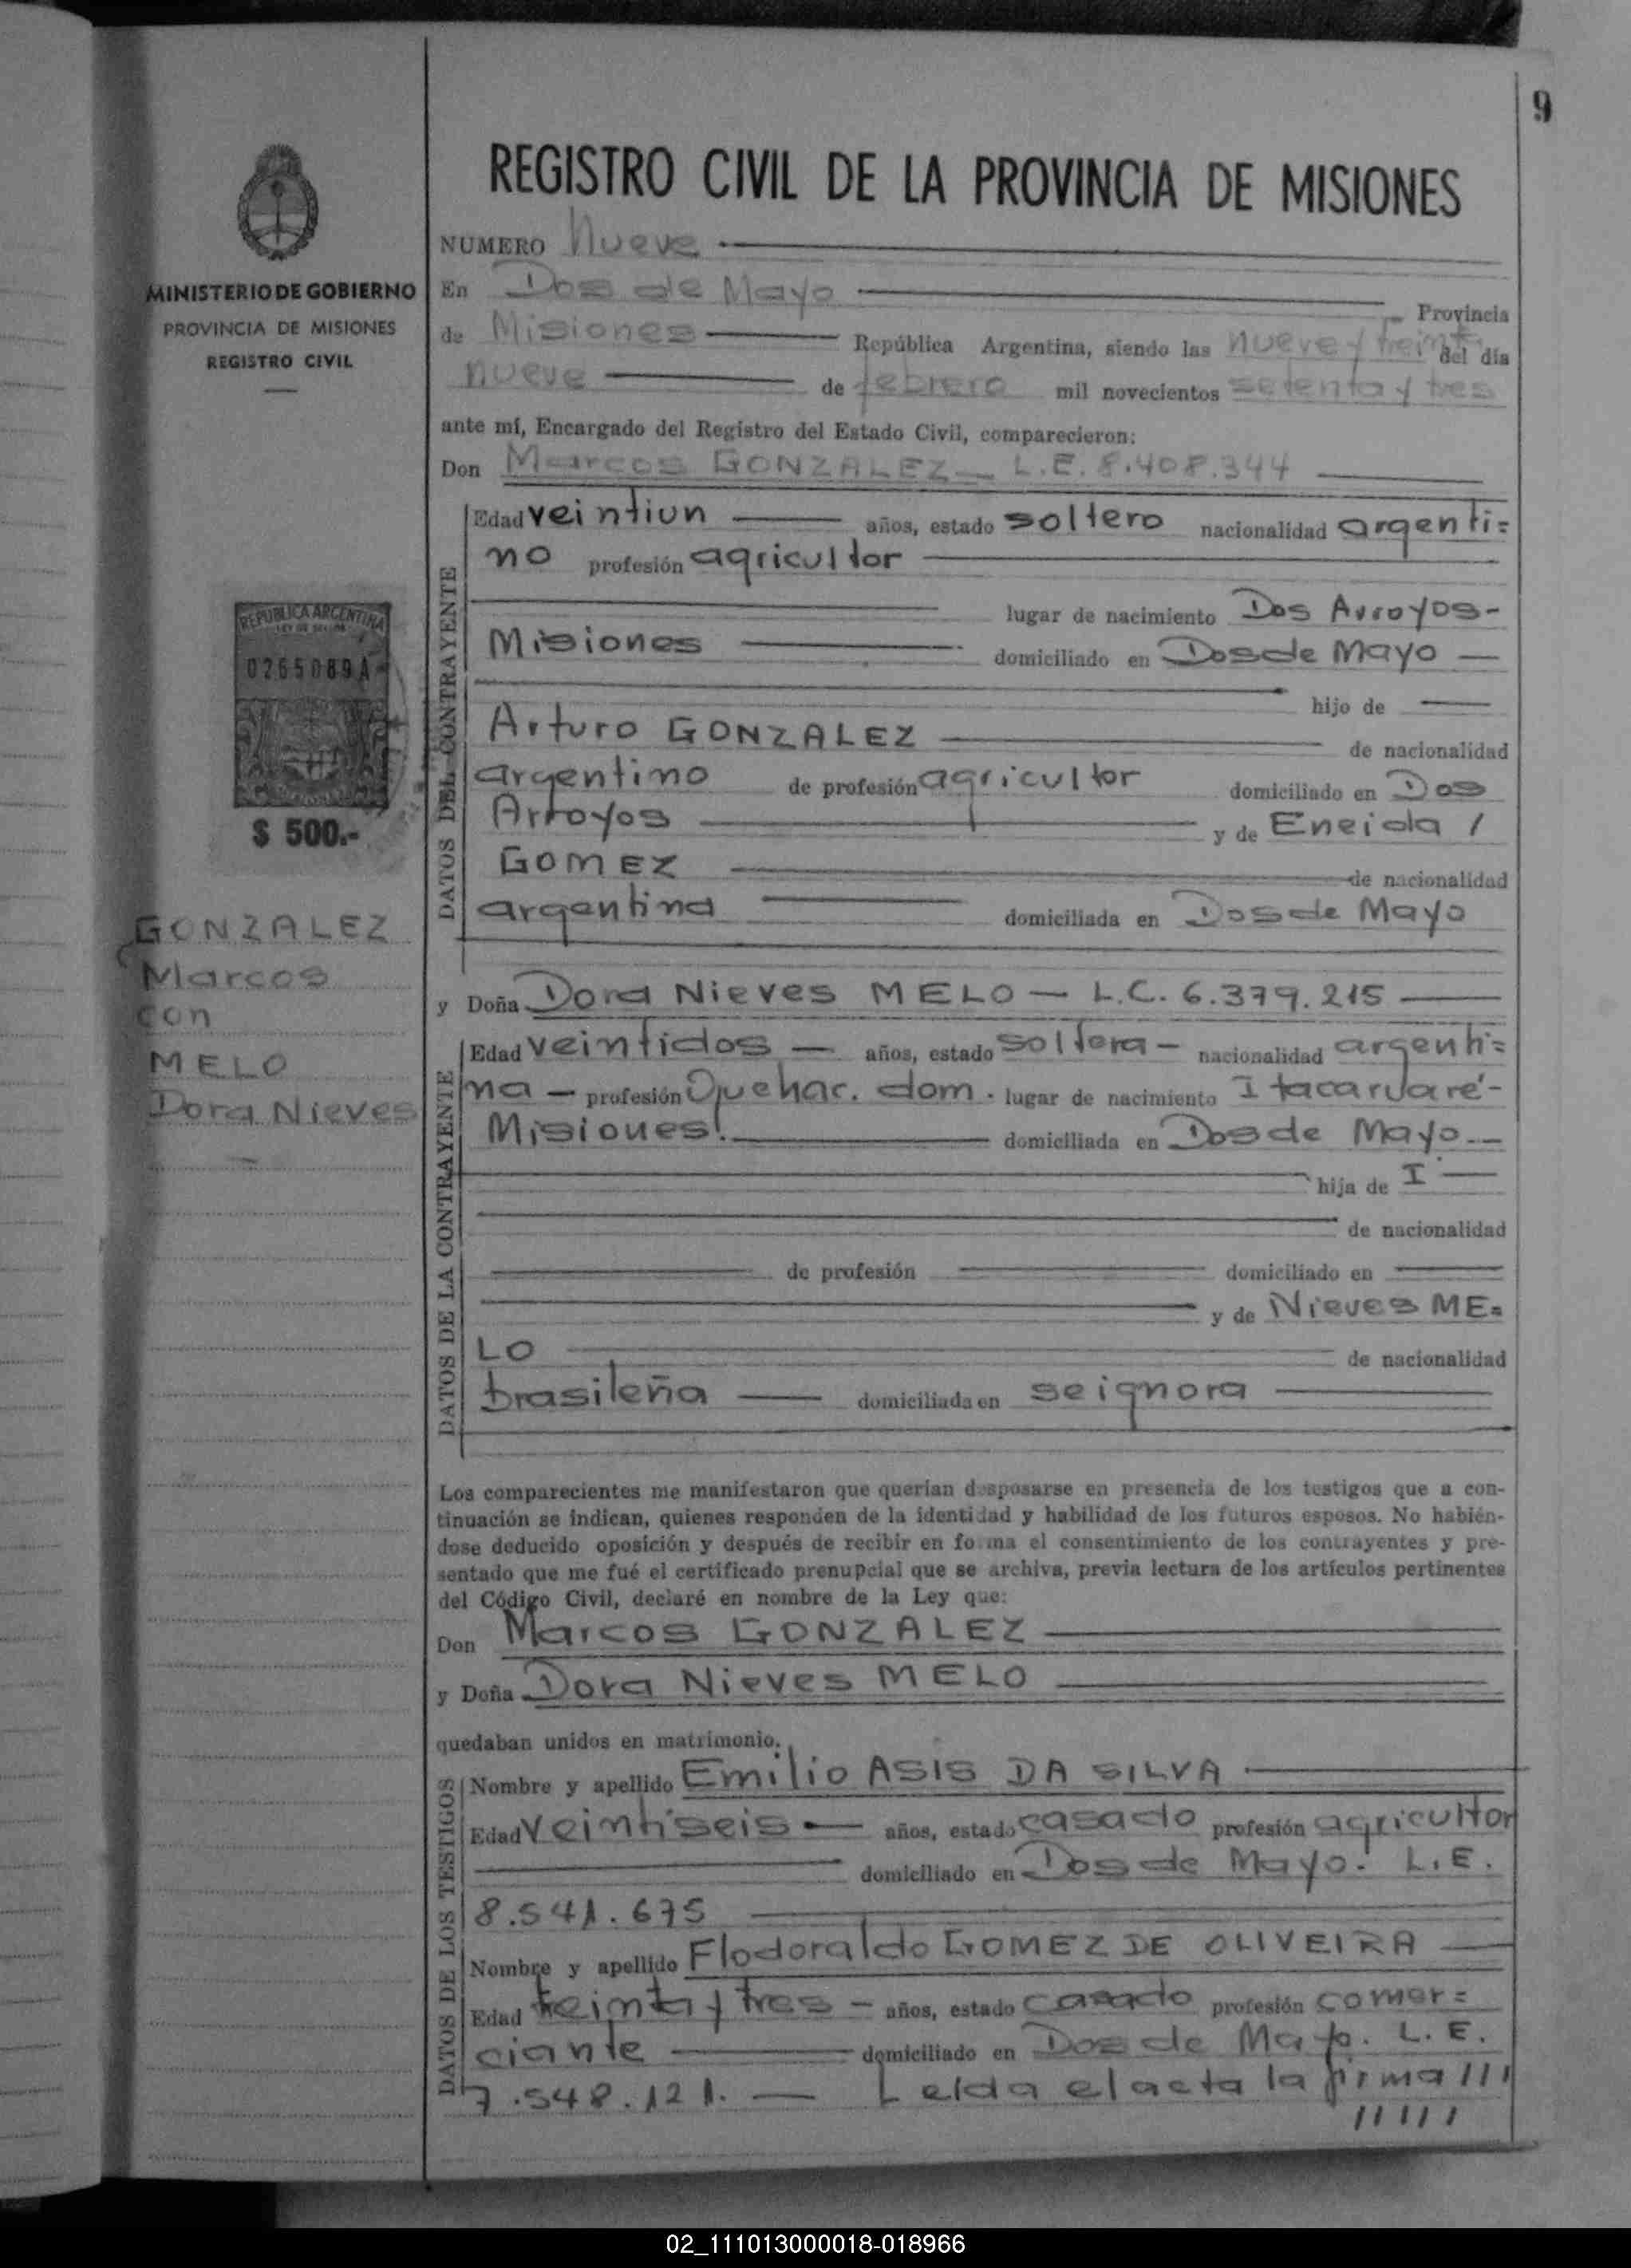 9
REGISTRO CIVIL DE LA PROVINCIA DE MISIONES
MINISTERIO DE GOBIERNO
PROVINCIA DE MISIONES
REGISTRO CIVIL
REPUBLICA ARGENTINA
LEY DE SELLOS
0265089A
$ 500.-
GONZALEZ
Marcos
con
MELO
Dora Nieves
NUMERO Nueve
En Dos de Mayo Provincia
de Misiones República Argentina, siendo las nueve y treinta del día
nueve de febrero mil novecientos setenta y tres
ante mí, Encargado del Registro del Estado Civil, comparecieron:
Don Marcos GONZALEZ - L.E. 8.408.344
DATOS DEL CONTRAYENTE
Edad veintiun años, estado soltero nacionalidad argenti=
no profesión agricultor
lugar de nacimiento Dos Arroyos-
Misiones domiciliado en Dos de Mayo
hijo de
Arturo GONZALEZ de nacionalidad
argentino de profesión agricultor domiciliado en Dos
Arroyos y de Eneida /
GOMEZ de nacionalidad
argentina domiciliada en Dos de Mayo
y Doña Dora Nieves MELO - L.C. 6.379.215
DATOS DE LA CONTRAYENTE
Edad veintidos - años, estado soltera - nacionalidad argenti=
na - profesión Quehac. dom. lugar de nacimiento Itacaruaré-
Misiones. domiciliada en Dos de Mayo.
hija de I
de nacionalidad
de profesión domiciliado en
y de Nieves ME=
LO de nacionalidad
brasileña domiciliada en seignora
Los comparecientes me manifestaron que querían desposarse en presencia de los testigos que a con-
tinuación se indican, quienes responden de la identidad y habilidad de los futuros esposos. No habién-
dose deducido oposición y después de recibir en forma el consentimiento de los contrayentes y pre-
sentado que me fué el certificado prenupcial que se archiva, previa lectura de los artículos pertinentes
del Código Civil, declaré en nombre de la Ley que:
Don Marcos GONZALEZ
y Doña Dora Nieves MELO
quedaban unidos en matrimonio.
DATOS DE LOS TESTIGOS
Nombre y apellido Emilio ASIS DA SILVA
Edad veintiseis - años, estado casado profesión agricultor
domiciliado en Dos de Mayo. L.E.
8.541.675
Nombre y apellido Flodoraldo GOMEZ DE OLIVEIRA
Edad treinta y tres - años, estado casado profesión comer=
ciante domiciliado en Dos de Mayo. L.E.
7.548.121. - Leida el acta la firma ///
/////
02_111013000018-018966